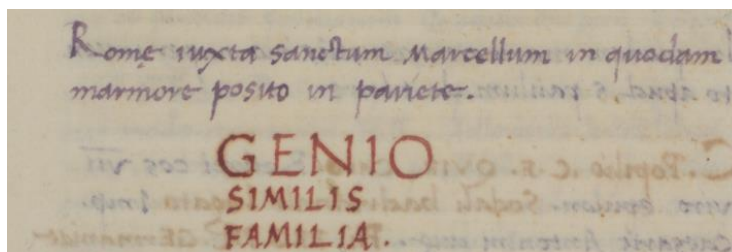 Romę iuxta Sanctum Marcellum in quodam
marmore posito in pariete.
GENIO
SIMILIS
FAMILIA.